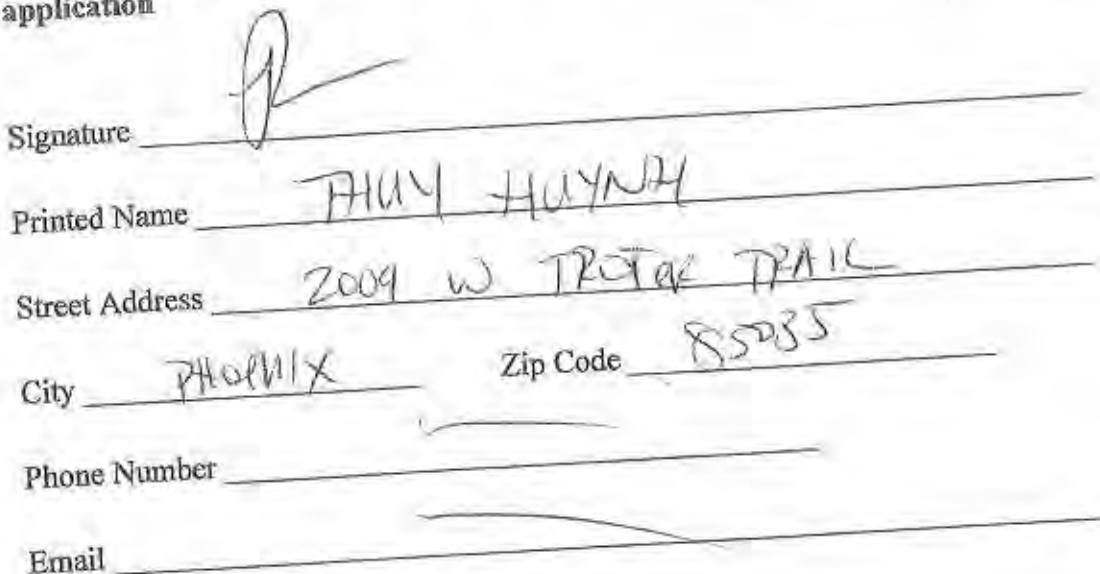 application
Signature
Printed Name THUY HUYNH
Street Address 2009 W TROTER TRAIL
City PHOENIX Zip Code 85085
Phone Number
Email